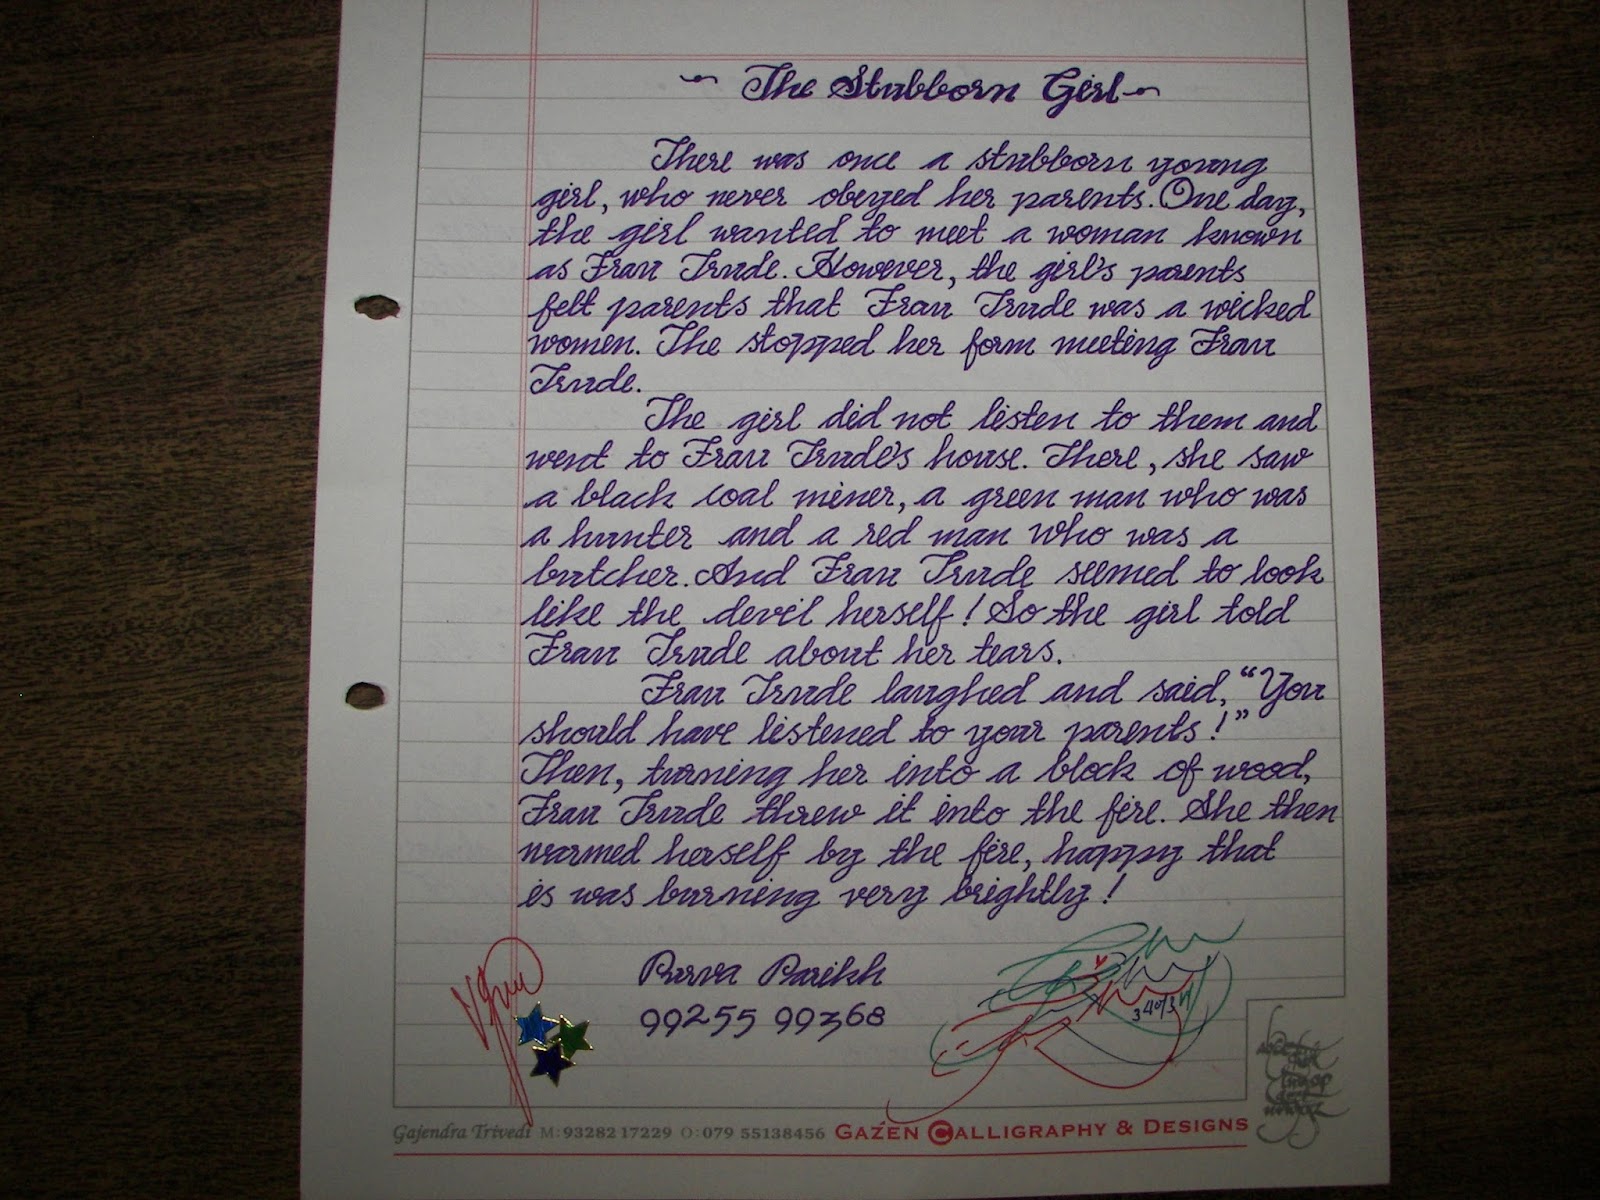 The Stubborn Girl
There was once a stubborn young
girl, who never obeyed her parents. One day,
the girl wanted to meet a woman known
as Frau Trude. However, the girl's parents
felt parents that Frau Trude was a wicked
women. The stopped her form meeting Frau
Trude.
The girl did not listen to them and
went to Frau Trude's house. There, she saw
a black coal miner, a green man who was
a hunter and a red man who was a
butcher. And Frau Trude seemed to look
like the devil herself! So the girl told
Frau Trude about her tears.
Frau Trude laughed and said, “You
should have listened to your parents!”
Then, turning her into a block of wood,
Frau Trude threw it into the fire. She then
warmed herself by the fire, happy that
is was burning very brightly!
Purva Parikh
99255 99368
Gajendra Trivedi M: 93282 17229 O: 079 55138456 GAZEN CALLIGRAPHY & DESIGNS